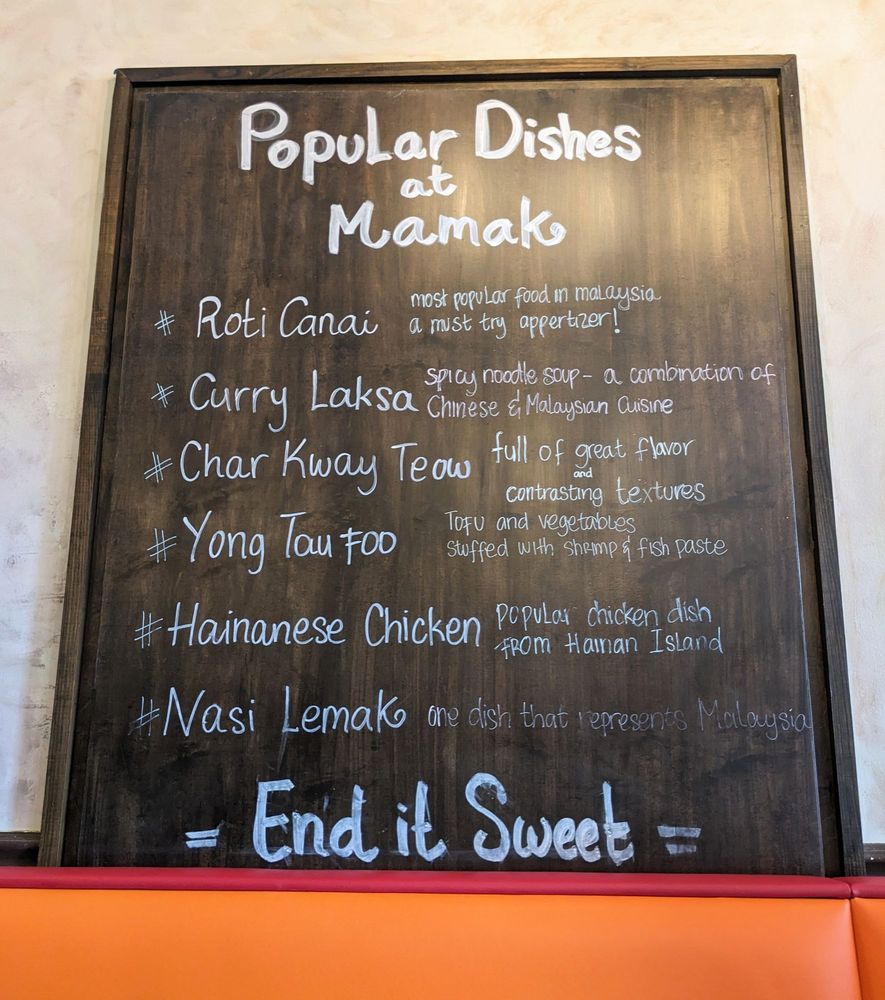 Popular Dishes
at
Mamak
# Roti Canai most popular food in malaysia
a must try appertizer!
# Curry Laksa spicy noodle soup - a combination of
Chinese & Malaysian Cuisine
# Char Kway Teow full of great flavor
and
contrasting textures
# Yong Tau Foo Tofu and vegetables
stuffed with shrimp & fish paste
# Hainanese Chicken popular chicken dish
from Hainan Island
# Nasi Lemak one dish that represents Malaysia
= End it Sweet =